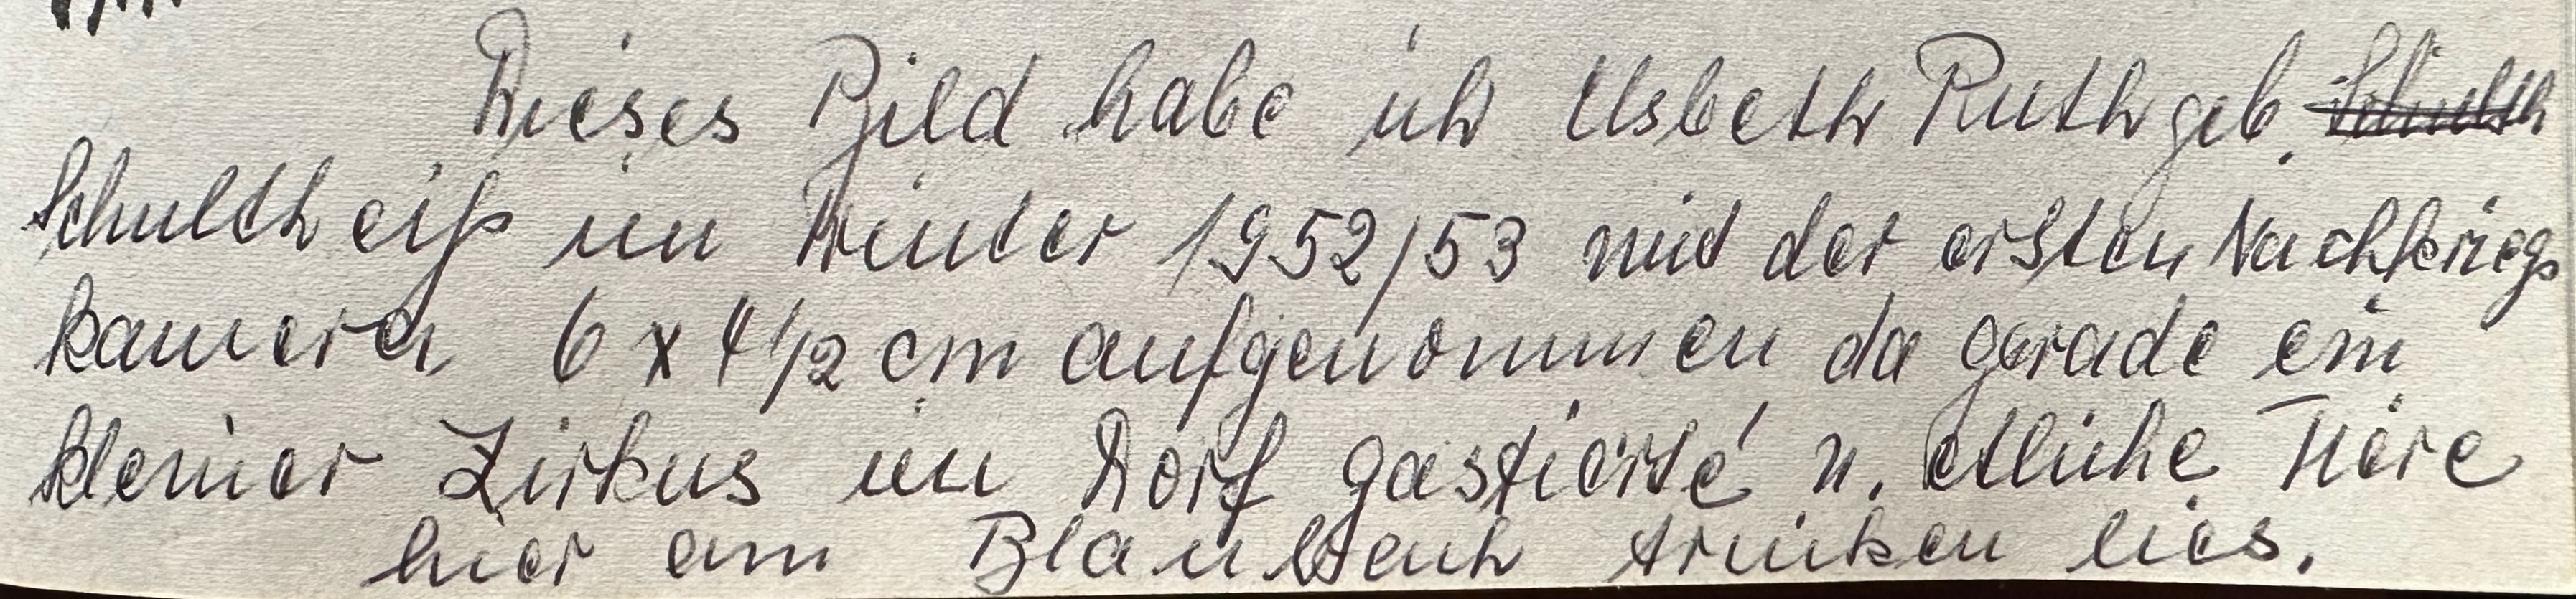 Dieses Bild habe ich Elsbeth Ruth geb. ~~Schulth~~
Schultheiß im Winter 1952/53 mit der ersten Nachkriegs
kamera 6 x 4 1/2 cm aufgenommen da gerade ein
kleiner Zirkus im Dorf gastierte u. etliche Tiere
hier am trinken lies.